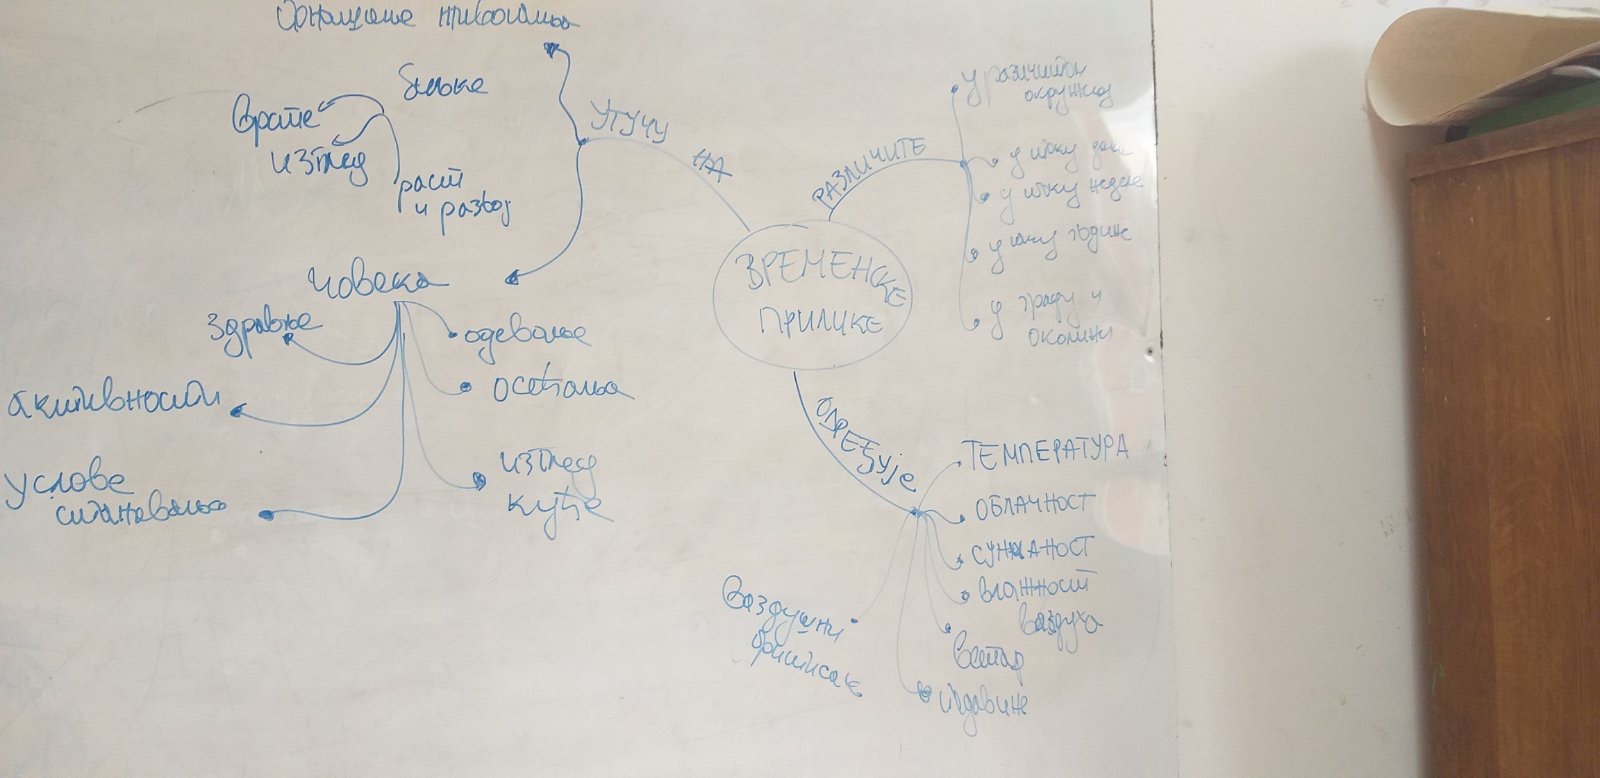 понашање животиња
биљке
врсте
изглед
раст
и развој
УТИЧУ
НА
човека
здравље
активности
услове
становања
одевање
осећања
изглед
куће
ВРЕМЕНСКЕ
ПРИЛИКЕ
РАЗЛИЧИТЕ
у различитом
окружењу
у току дана
у току недеље
у току године
у граду и
околини
ОДРЕЂУЈЕ
ТЕМПЕРАТУРА
ОБЛАЧНОСТ
СУНЧАНОСТ
влажност
ваздуха
ветар
падавине
Ваздушни
притисак